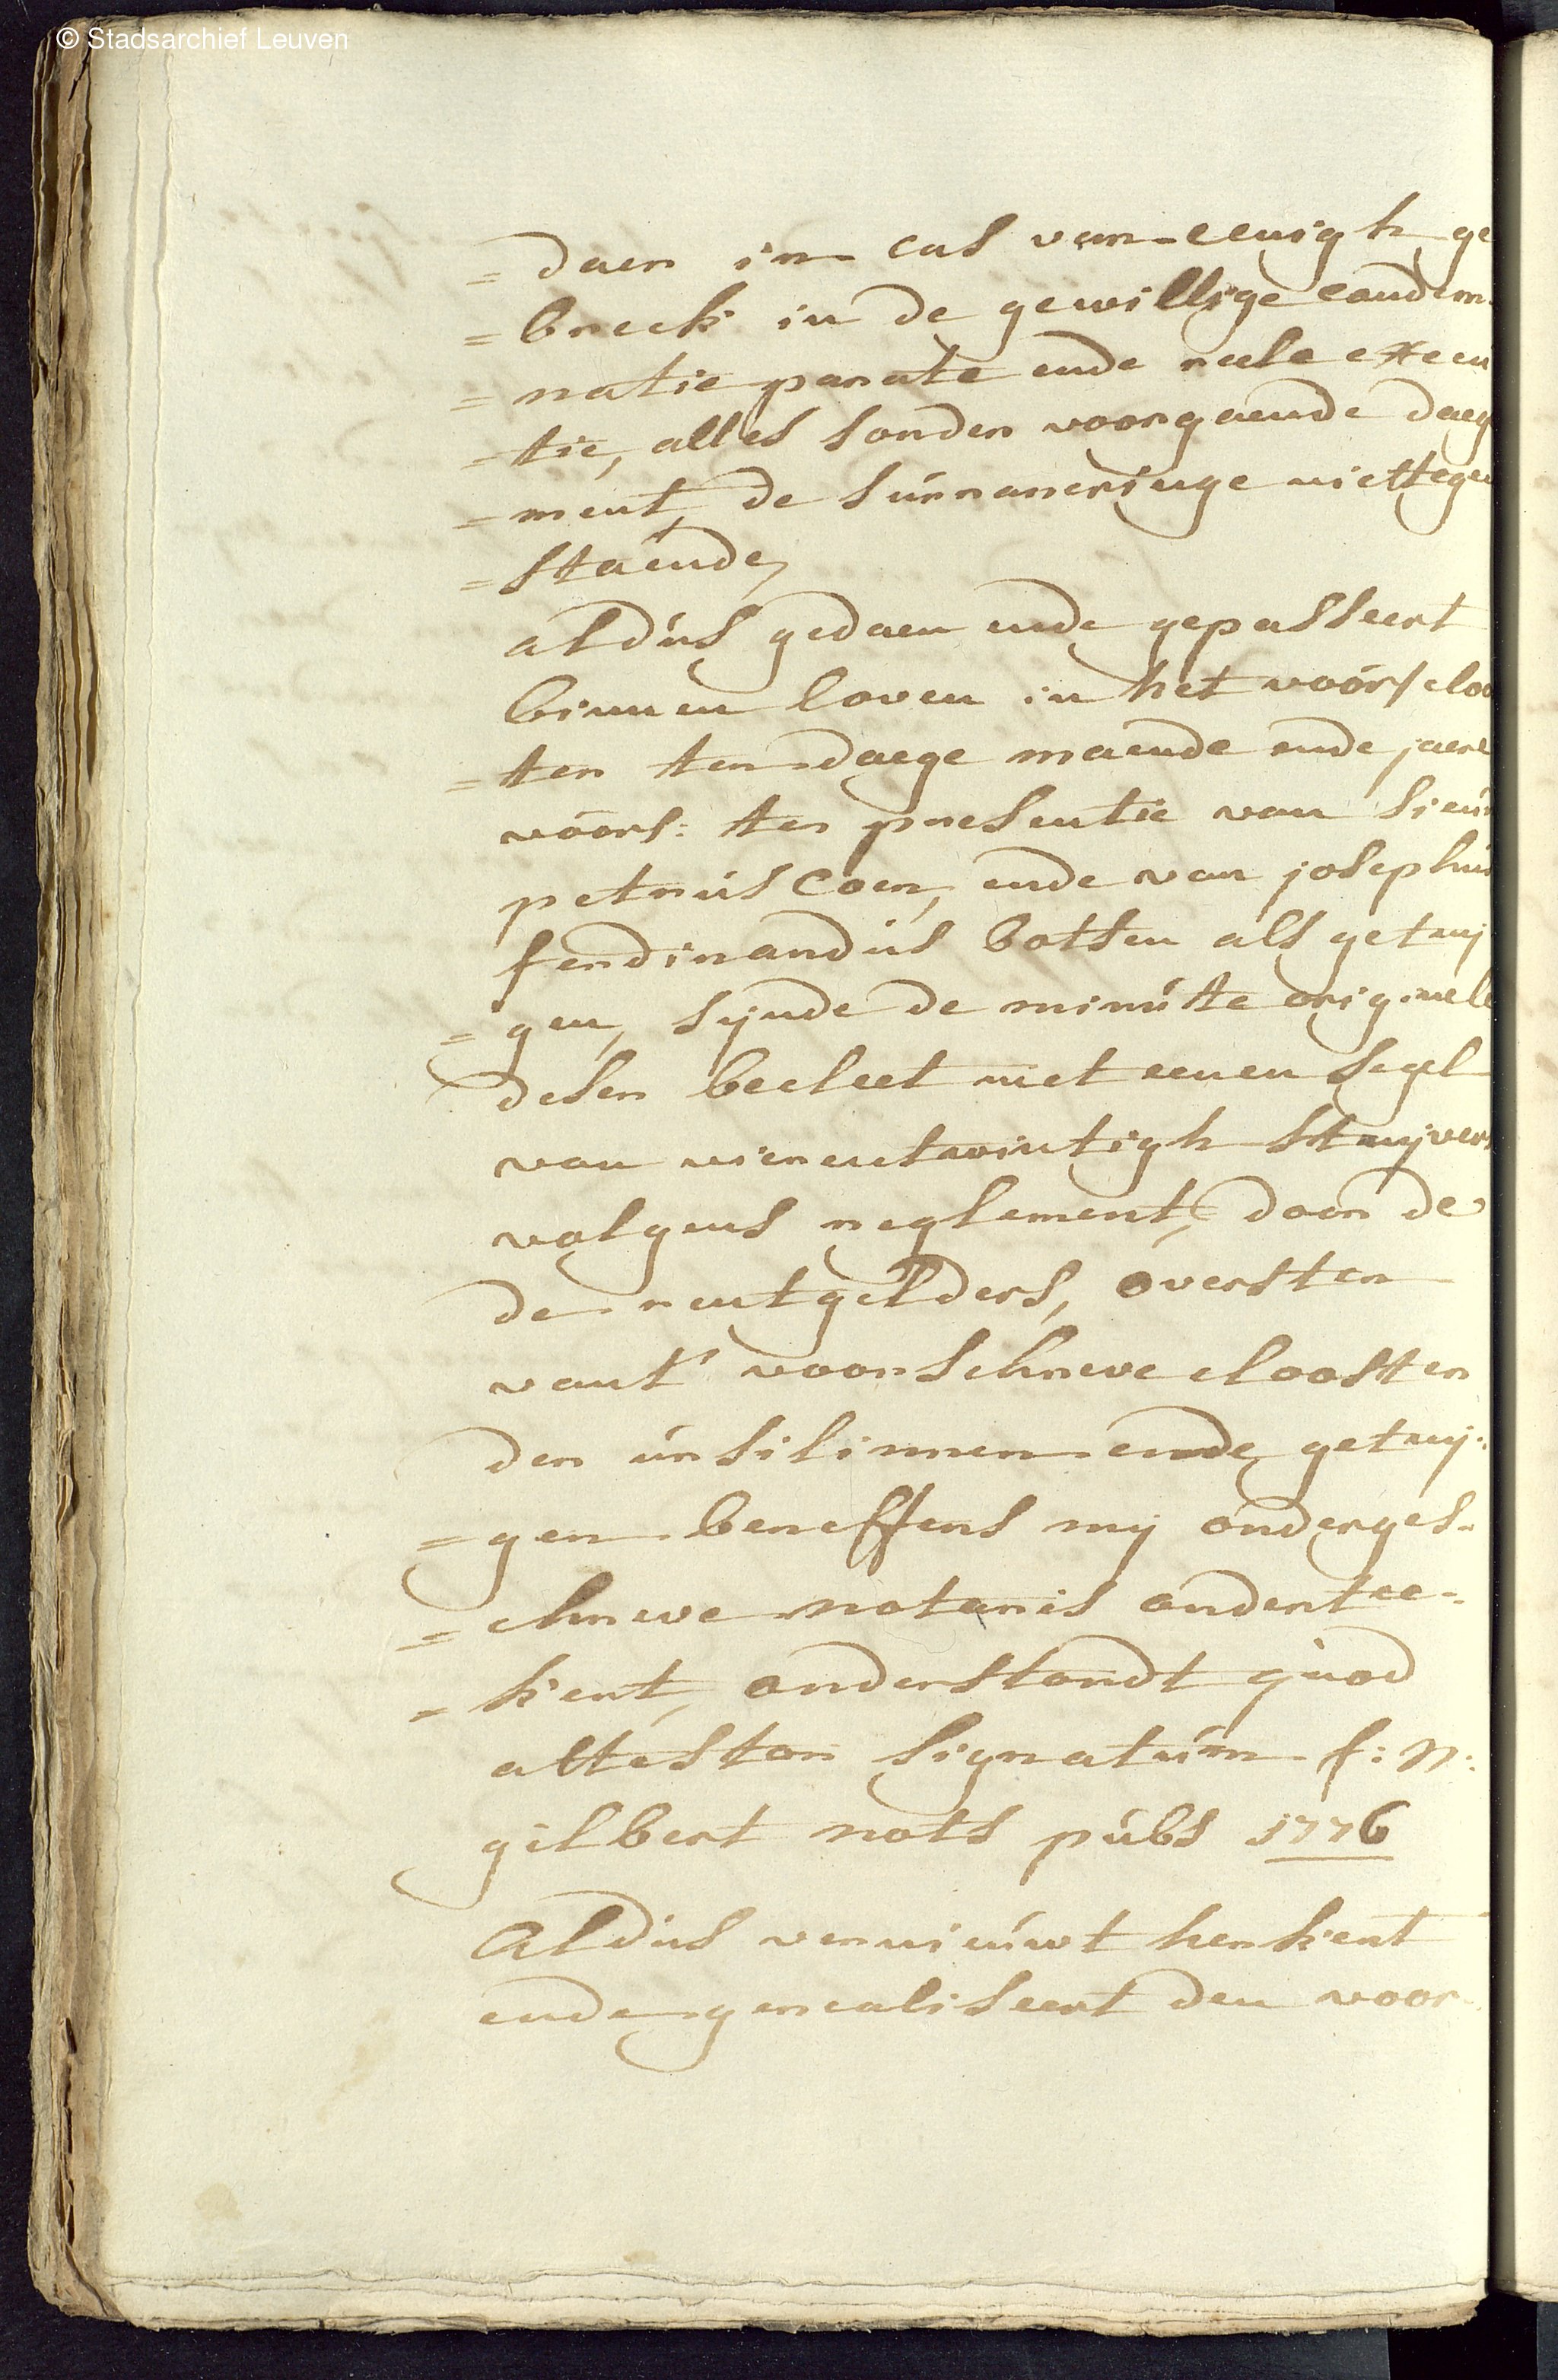 © Stadsarchief Leuven
= daer in cas van eenigh ge
= breck in de gewillige condem-
= natie parate ende reele executie
= tie, alles sonder voorgaende daeg
= ment, de surranneringe niettegen
= staende,
aldus gedaen ende gepasseert
binnen loven in het voors/ cloo
= ter ten daege maende ende jaere
voors: ter presentie van sieur
petrus Coen, ende van josephus
ferdinandus botsen als getuy
= gen, synde de minute originele
deser becleet met eenen segel
van vierentwintigh stuyvers
volgens reglement, door de
de rentgelders, oversten
vant' voorschreve clooster
der ursilinnen ende getuy-
= gen beneffens my onderges-
= chreve notaris ondertee-
= kent, onderstondt quod
attestor signatum f: n:
gilbert nots pubs 1776
Aldus vernieuwt herkent
ende gerealiseert den voor-